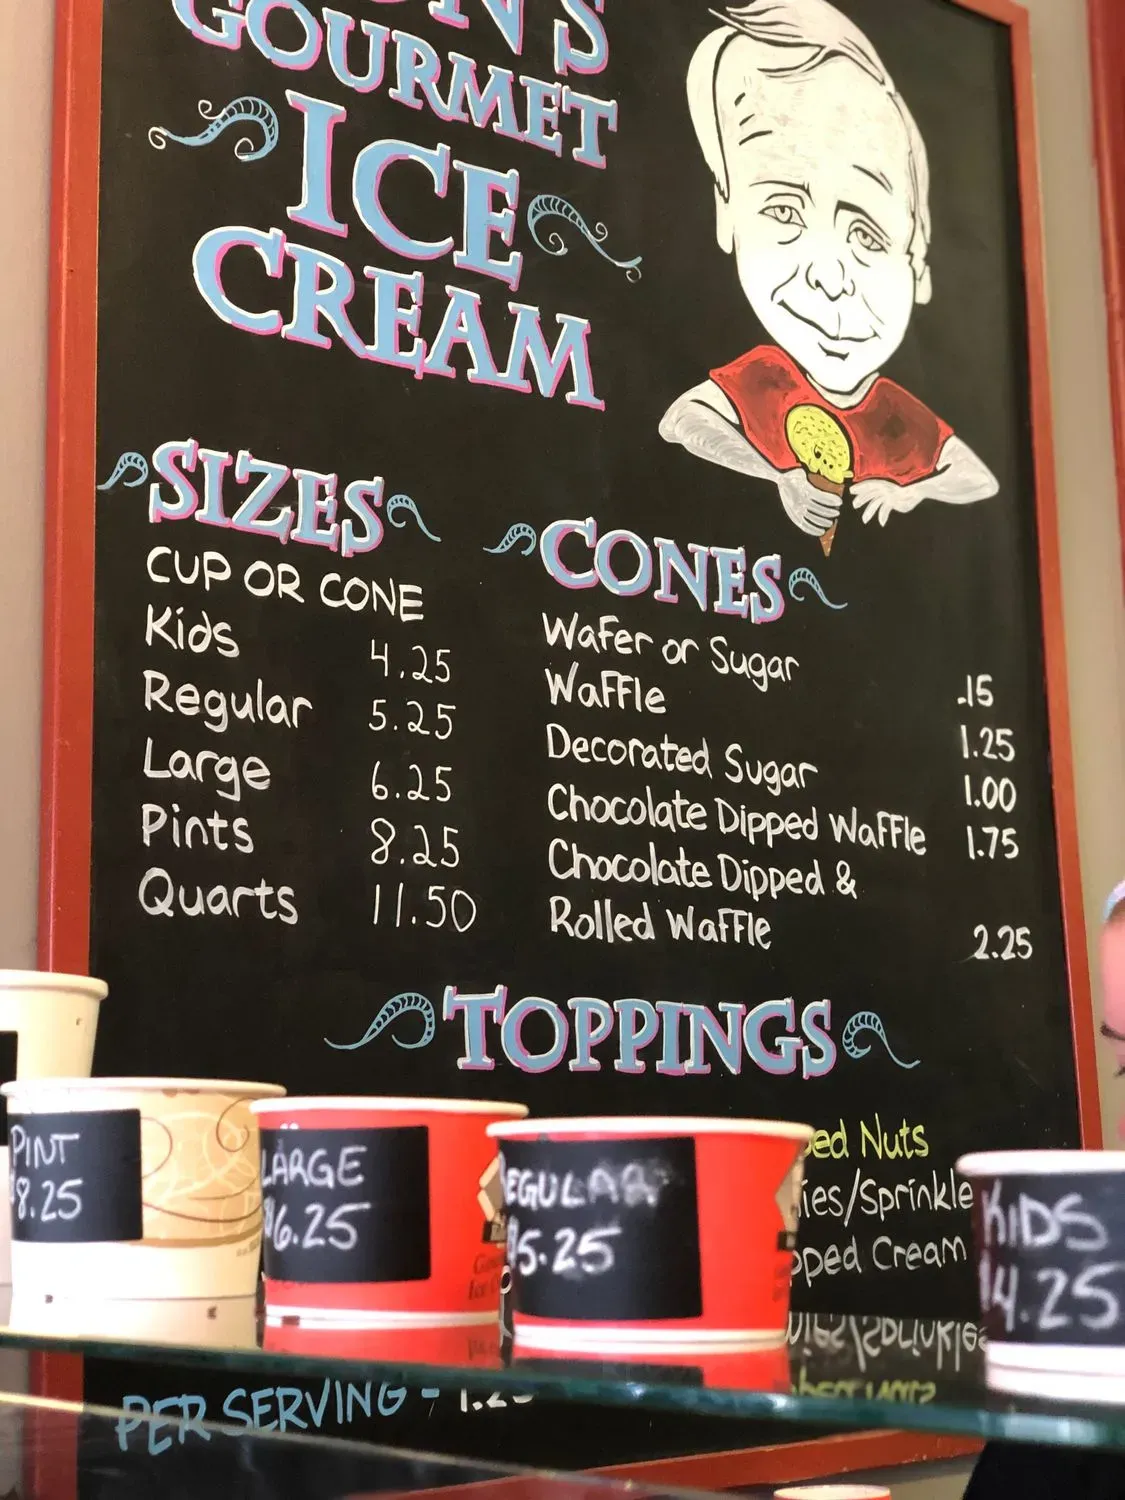 GOURMET
ICE
CREAM
SIZES
CUP OR CONE
Kids 4.25
Regular 5.25
Large 6.25
Pints 8.25
Quarts 11.50
CONES
Wafer or Sugar .15
Waffle 1.25
Decorated Sugar 1.00
Chocolate Dipped Waffle 1.75
Chocolate Dipped &
Rolled Waffle 2.25
TOPPINGS
Nuts
/Sprinkle
Cream
PINT
8.25
LARGE
$6.25
EGULAR
$5.25
KIDS
$4.25
PER SERVING -